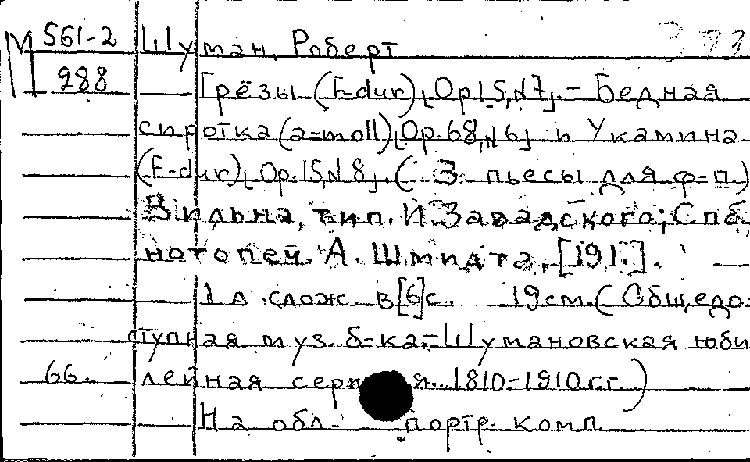 М 561-2 Шуман, Роберт
288 Грёзы (F-dur), Op.15, №7. - Бедная
сиротка (a-moll) [Op.68, №6] и У камина
(F-dur), Op.15, №8. (3 пьесы для ф-п.)
Вильна, тип. И. Завадского; Спб,
нотопеч. А. Шмидта, [191.].
1 л. слож. в [6] с. 19 см. (Общедо-
ступная муз. б-ка.-Шумановская юби-
66. лейная серия. 1810-1910 гг.)
На обл. портр. комп.